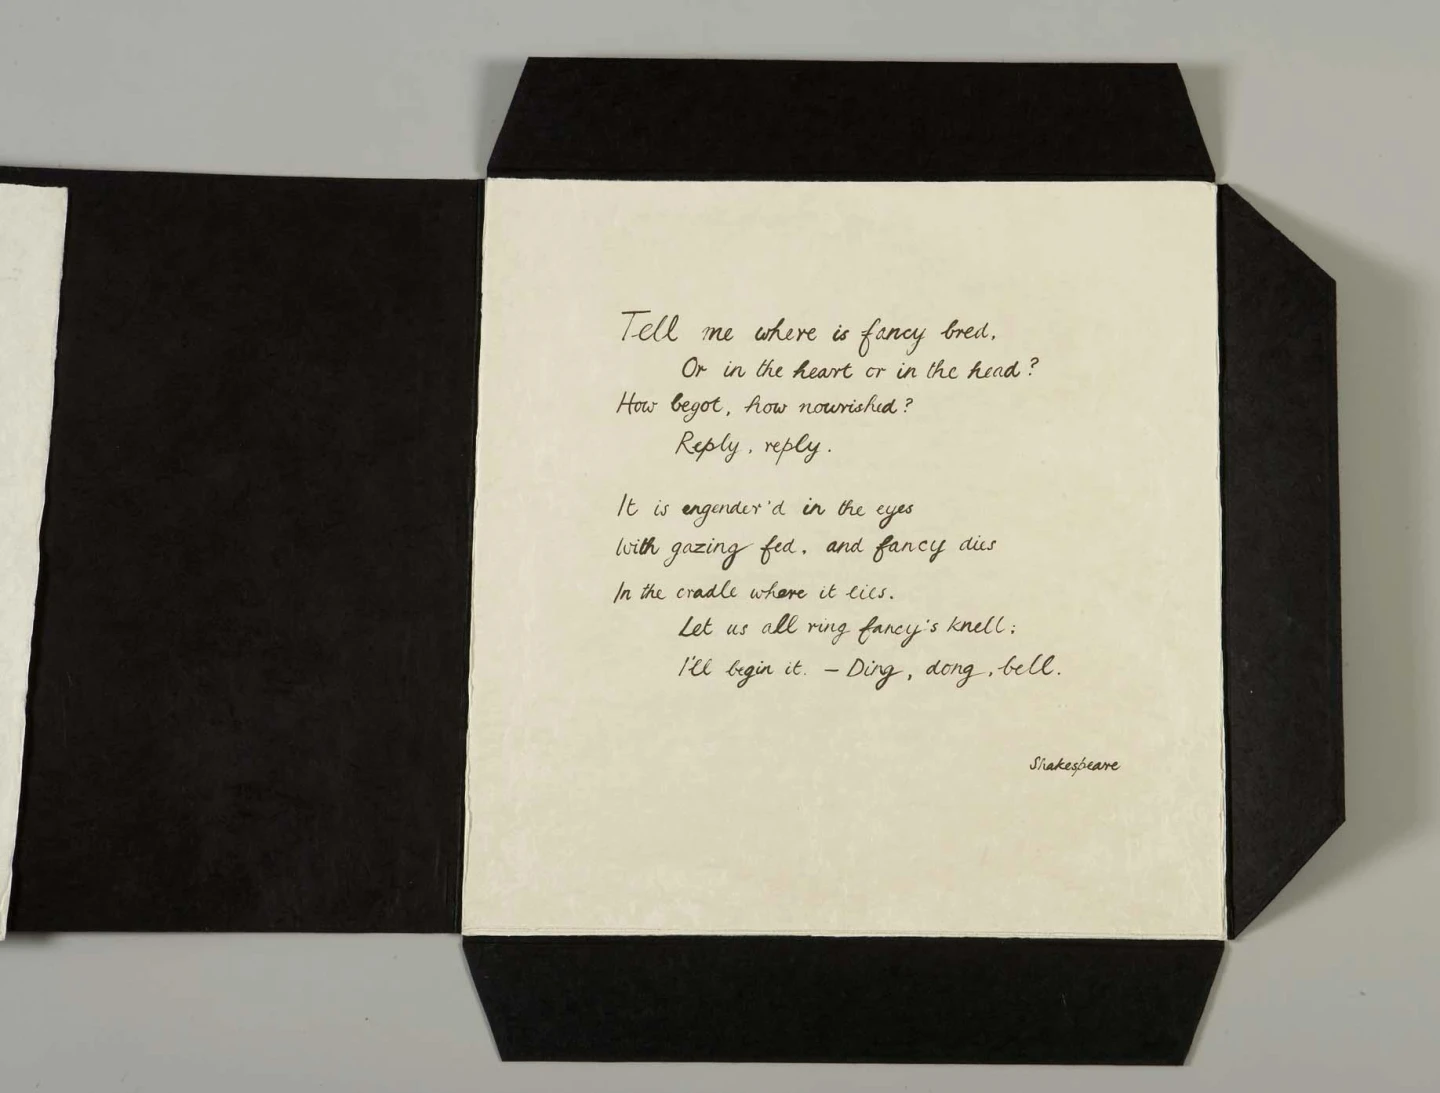 Tell me where is fancy bred,
Or in the heart or in the head?
How begot, how nourished?
Reply, reply.
It is engender'd in the eyes
With gazing fed, and fancy dies
In the cradle where it lies.
Let us all ring fancy's knell;
I'll begin it. – Ding, dong, bell.
Shakespeare